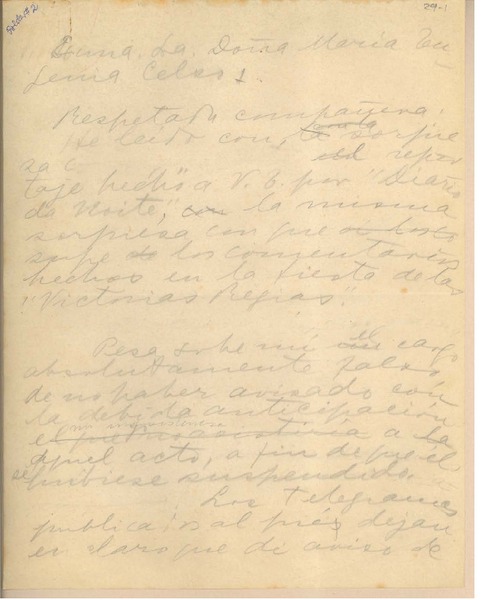 29-1
Exma. Sra. Doña Maria Eu-
genia Celso.
Respetada compañera:
He leido con, la tanta sorpre
sa el repor
taje hecho a V. E. por "Diario
da Noite", con la misma
sorpresa con que
supe de los comentarios
hechos en la fiesta de las
"Victorias Regias".
Pesa sobre mi el cargo
absolutamente falso
de no haber avisado con
la debida anticipación
mi inasistencia
a
aquel acto, a fin de que él
se hubiese suspendido.
Los telegramas
publicados al pié, dejan
en claro que di aviso de